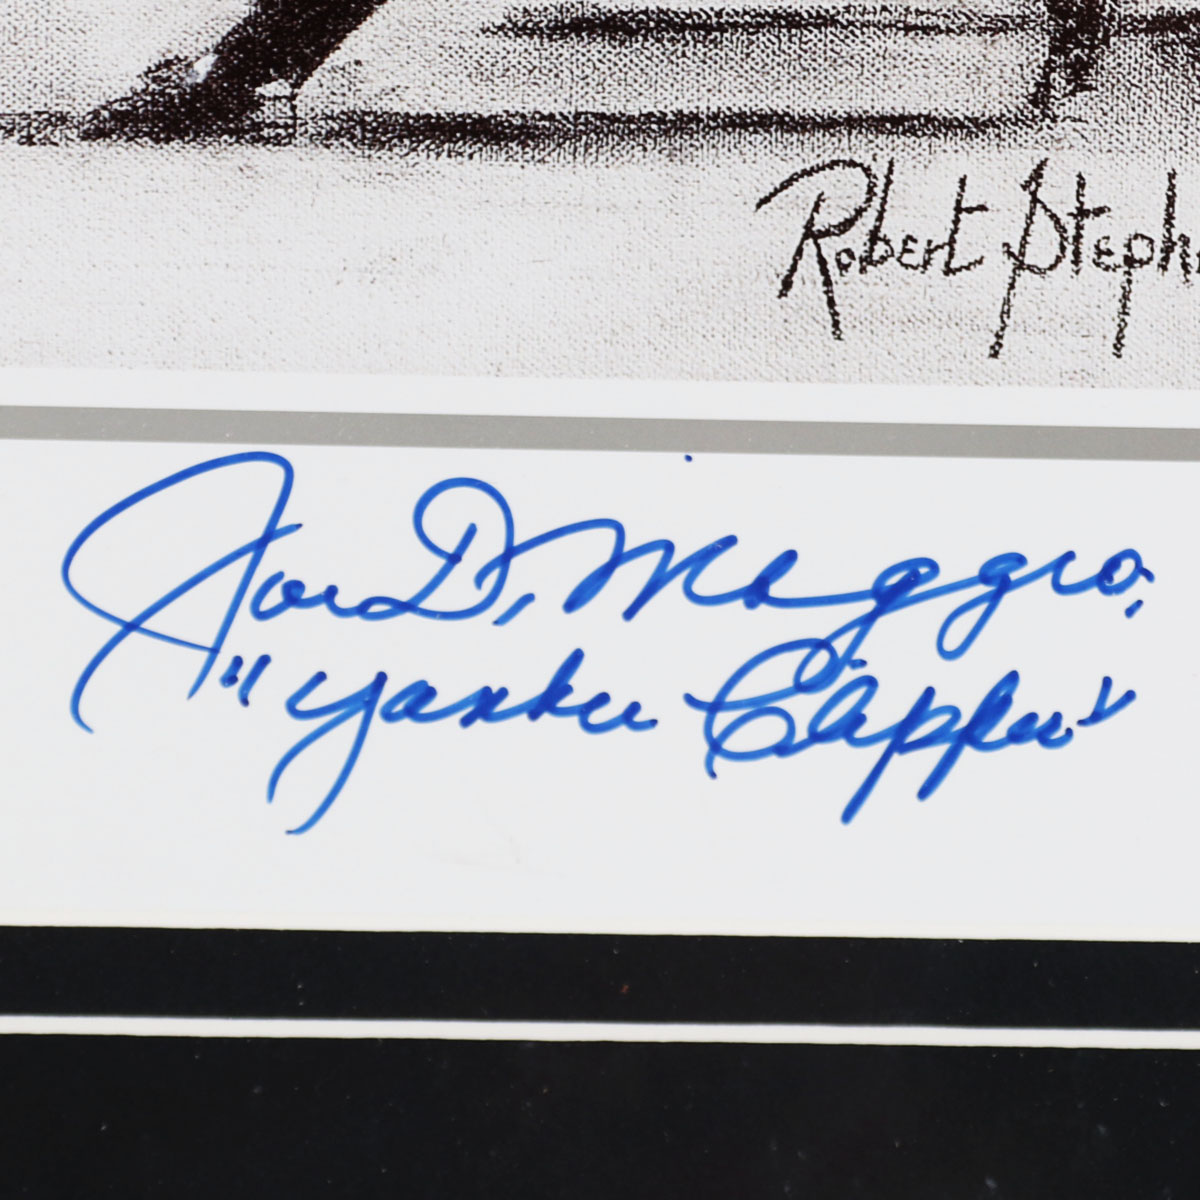 Robert Steph
Joe DiMaggio,
"Yankee Clipper"